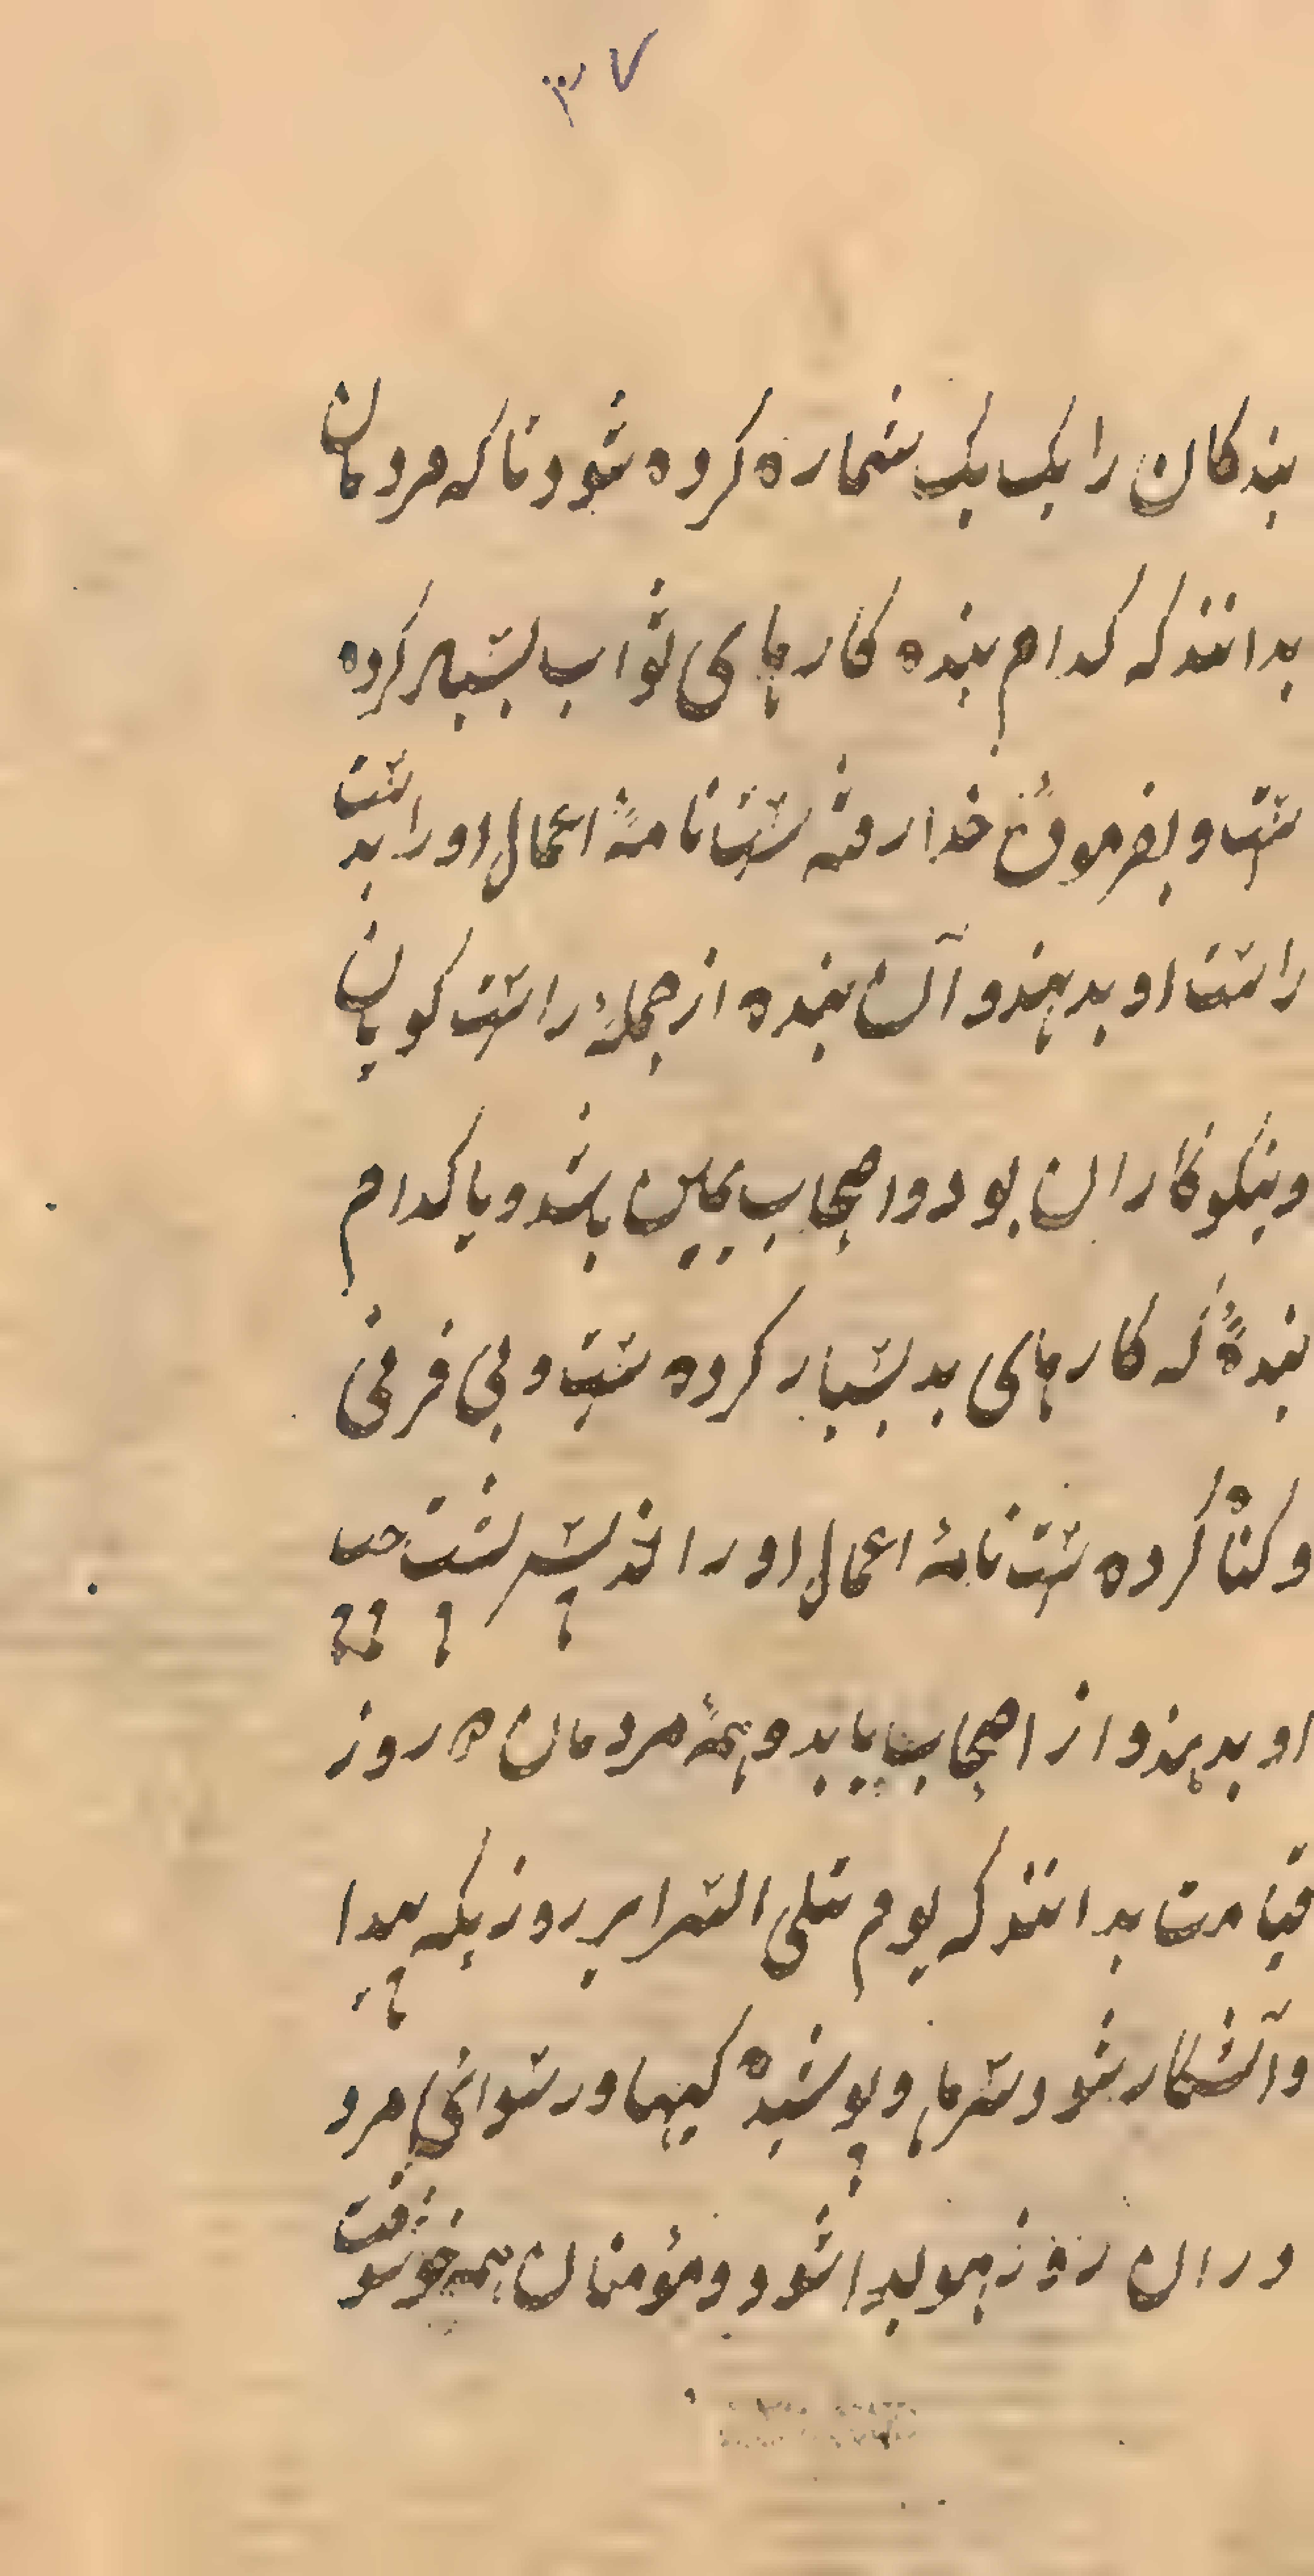 ۳۷
بندکان را یک یک شماره کرده شود تا که مردمان
بدانند که کدام بنده کارهای ثواب بسیار کرده
ست و بفرمودۀ خدا رفته ست نامۀ اعمال او را بدست
راست او بدهند و آن بنده از جملۀ راست کویان
و نیکوکاران بود و اصحاب یمین باشد و یا کدام
بندۀ که کارهای بد بسیار کرده ست و بی فرمنی
و کناه کرده ست نامۀ اعمال او را از پس پشت چپ
او بدهند و از اصحاب یابد و همۀ مردمان روز
قیامت بدانند که یوم تبلی السرایر روزیکه پیدا
و آشکار شود سرها و پوشیده کیها و رسوائی مرد
در ان روز هویدا شود و مؤمنان همه خوشوقت